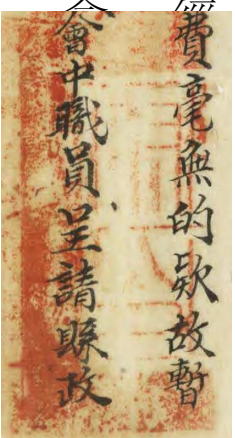 費毫無的欵故暫
會中職員呈請縣政